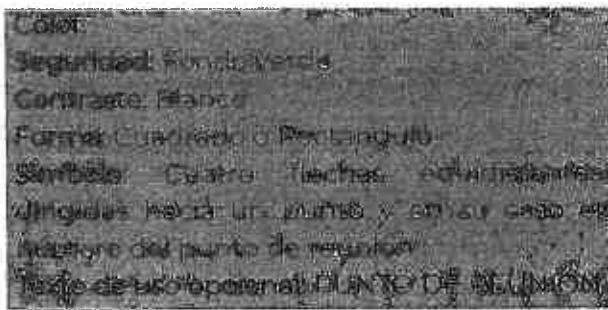 Color:
Seguridad: Fondo Verde
Contraste: Blanco
Forma: Cuadrado o Rectángulo
Símbolo: Cuatro flechas equidistantes
dirigidas hacia un punto y en su caso el
del punto de reunión
Texto de uso opcional: PUNTO DE REUNIÓN